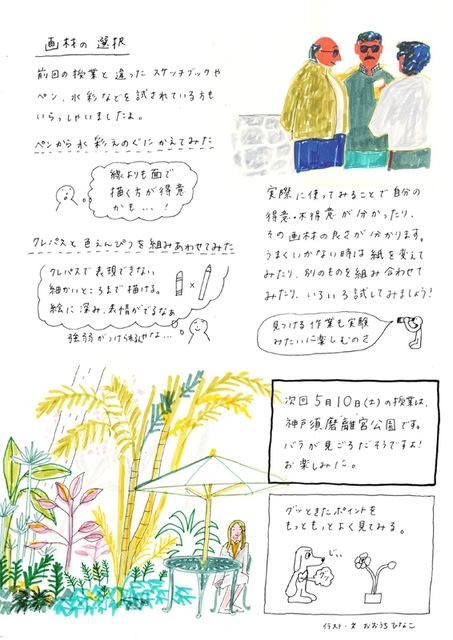 画材の選択
前回の授業と違ったスケッチブックや
ペン、水彩などを試されている方も
いらっしゃいましたよ。
ペンから水彩えのぐにかえてみた
線よりも面で
描く方が得意
かも…!
クレパスと色えんぴつを組みあわせてみた
クレパスで表現できない
細かいところまで描ける。
絵に深み、表情がでるなぁ
×
強弱がつけられるやな…
実際に使ってみることで自分の
得意・不得意が分かったり、
その画材の良さが分かります。
うまくいかない時は紙を変えて
みたり、別のものを組み合わせて
みたり、いろいろ試してみましょう!
見つける作業も実験
みたいに楽しむのさ
次回5月10日(土)の授業は、
神戸須磨離宮公園です。
バラが見ごろだそうですよ!
お楽しみに。
グッときたポイントを
もっともっとよく見てみる。
じぃ
グッ
イラスト・文 おおうちひなこ